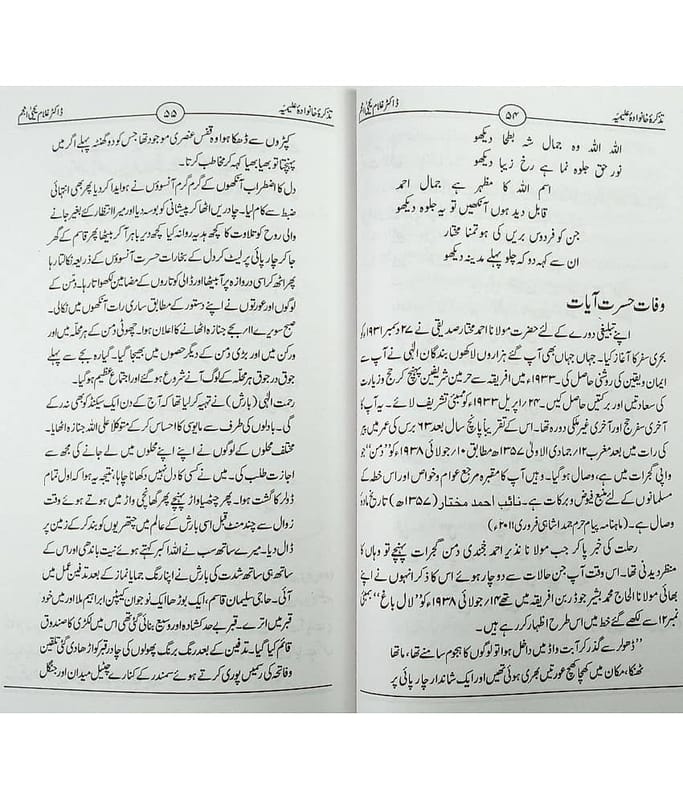 تذکرۂ خانوادۂ علیمیہ
۵۴
ڈاکٹر غلام یحییٰ انجم
اللہ اللہ وہ جمال شہ بطحا دیکھو
نور حق جلوہ نما ہے رخ زیبا دیکھو
اسم اللہ کا مظہر ہے جمال احمد
قابل دید ہوں آنکھیں تو یہ جلوہ دیکھو
جن کو فردوس بریں کی ہو تمنا مختار
ان سے کہہ دو کہ چلو پہلے مدینہ دیکھو
وفات حسرت آیات
اپنے تبلیغی دورے کے لئے حضرت مولانا احمد مختار صدیقی نے ۲۷ دسمبر ۱۹۳۱ء کو
بحری سفر کا آغاز کیا۔ جہاں جہاں بھی آپ گئے ہزاروں لاکھوں بندگان الٰہی نے آپ سے
ایمان و یقین کی روشنی حاصل کی۔ ۱۹۳۳ء میں افریقہ سے حرمین شریفین پہنچ کر حج و زیارت
کی سعادتیں اور برکتیں حاصل کیں۔ ۲۴/اپریل ۱۹۳۳ء کو ممبئی تشریف لائے۔ یہ آپ کا
آخری سفر حج اور آخری غیر ملکی دورہ تھا۔ اس کے تقریباً پانچ سال بعد ۶۳ برس کی عمر میں پیر
کی رات میں بعد مغرب ۱۲/جمادی الاولیٰ ۱۳۵۷ھ مطابق ۱۰/جولائی ۱۹۳۸ء کو ”دمن“ جو
واپی گجرات میں ہے، وصال ہو گیا۔ وہیں آپ کا مقبرہ مرجع عوام و خواص اور اس خطہ کے
مسلمانوں کے لئے منبع فیوض و برکات ہے۔ نائب احمد مختار (۱۳۵۷ھ) تاریخ مادۂ
وصال ہے۔ (ماہنامہ پیام حرم جمدا شاہی فروری ۲۰۱۱ء)
رحلت کی خبر پا کر جب مولانا نذیر احمد خجندی دمن گجرات پہنچے تو وہاں کا
منظر دیدنی تھا۔ اس وقت آپ جن حالات سے دوچار ہوئے اس کا ذکر انہوں نے اپنے
بھائی مولانا الحاج محمد بشیر جو ڈربن افریقہ میں تھے ۱۴/جولائی ۱۹۳۸ء کو ”لال باغ“ بمبئی
نمبر ۱۲ سے لکھے گئے خط میں اس طرح اظہار کر رہے ہیں۔
”ڈھولر سے گذر کر آبت واڈ میں داخل ہوا تو لوگوں کا ہجوم سامنے تھا، ماتھا
ٹھنکا، مکان میں کھچا کھچ عورتیں بھری ہوئی تھیں اور ایک شاندار چار پائی پر
تذکرۂ خانوادۂ علیمیہ
۵۵
ڈاکٹر غلام یحییٰ انجم
کپڑوں سے ڈھکا ہوا وہ قفس عنصری موجود تھا جس کو دو گھنٹہ پہلے اگر میں
پہنچتا تو بھیا بھیا کہہ کر مخاطب کرتا۔
دل کا اضطراب آنکھوں کے گرم گرم آنسوؤں نے ہویدا کر دیا پھر بھی انتہائی
ضبط سے کام لیا۔ چادریں اٹھا کر پیشانی کو بوسہ دیا اور میرا انتظار کئے بغیر جانے
والی روح کو تلاوت کا کچھ ہدیہ روانہ کیا کچھ دیر باہر آ کر بیٹھا پھر قاسم کے گھر
جا کر چار پائی پر لیٹ کر دل کے بخارات حسرت آنسوؤں کے ذریعہ نکالتا رہا
پھر اٹھ کر اسی دروازہ پر آ بیٹھا اور ڈالی کو تاروں کے مضامین لکھواتا رہا۔ دمن کے
لوگوں اور عورتوں نے اپنے دستور کے مطابق ساری رات آنکھوں میں نکالی۔
صبح سویرے ۱۱ بجے جنازہ اٹھانے کا اعلان ہوا۔ چھوٹی دمن کے ہر محلہ میں اور
ورکن میں اور بڑی دمن کے دیگر حصوں میں بھیجا گیا۔ گیارہ بجے سے پہلے
جوق در جوق ہر محلہ کے لوگ آنے شروع ہو گئے اور اجتماع عظیم ہو گیا۔
رحمت الٰہی (بارش) نے تہیہ کر لیا تھا کہ آج کے دن ایک سیکنڈ کو بھی نہ رکے
گی۔ بادلوں کی طرف سے مایوسی کا احساس کر کے متوکلاً علی اللہ جنازہ اٹھایا۔
مختلف محلوں کے لوگوں نے اپنے اپنے محلوں میں لے جانے کی مجھ سے
اجازت طلب کی۔ میں نے کسی کا دل نہیں دکھانا چاہا، نتیجہ یہ ہوا کہ اول تمام
ڈولر کا گشت ہوا۔ پھر چنھیا واڑ پہنچے پھر گھانچی واڑ میں ہوتے ہوئے وقت
زوال سے چند منٹ قبل اسی بارش کے عالم میں چھتریوں کو بند کر کے زمین پر
ڈال دیا۔ میرے ساتھ سب نے اللہ اکبر کہتے ہوئے نیت باندھی اور اس کے
ساتھ ہی ساتھ شدت کی بارش نے اپنا رنگ جمایا نماز کے بعد تدفین عمل میں
آئی۔ حاجی سلیمان قاسم، ایک بوڑھا ایک نوجوان کیپٹن ابراہیم ملا اور میں خود
قبر میں اترے۔ قبر بے حد کشادہ اور وسیع بنائی گئی تھی اس میں لکڑی کا صندوق
قائم کیا گیا۔ تدفین کے بعد رنگ برنگ پھولوں کی چادر قبر کو اڑھا دی گئی تلقین
و فاتحہ کی رسمیں پوری کرتے ہوئے سمندر کے کنارے چٹیل میدان اور جنگل